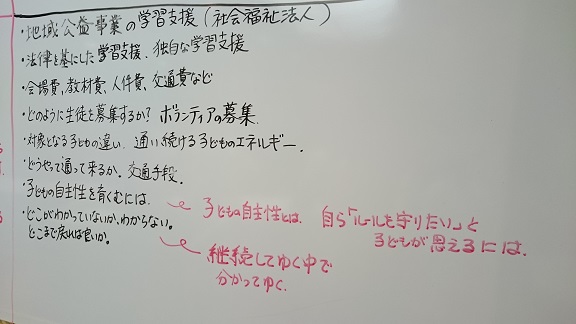 ・地域公益事業の学習支援(社会福祉法人)
・法律を基にした学習支援、独自な学習支援
・会場費、教材費、人件費、交通費など
・どのように生徒を募集するか? ボランティアの募集.
・対象となる子どもの違い. 通い続ける子どものエネルギー.
・どうやって通って来るか. 交通手段.
・子どもの自主性を育くむには.
子どもの自主性とは. 自ら「ルールを守りたい」と
子どもが思えるには.
・どこがわかっていないか、わからない。
どこまで戻れば良いか。
継続してゆく中で
分かってゆく.